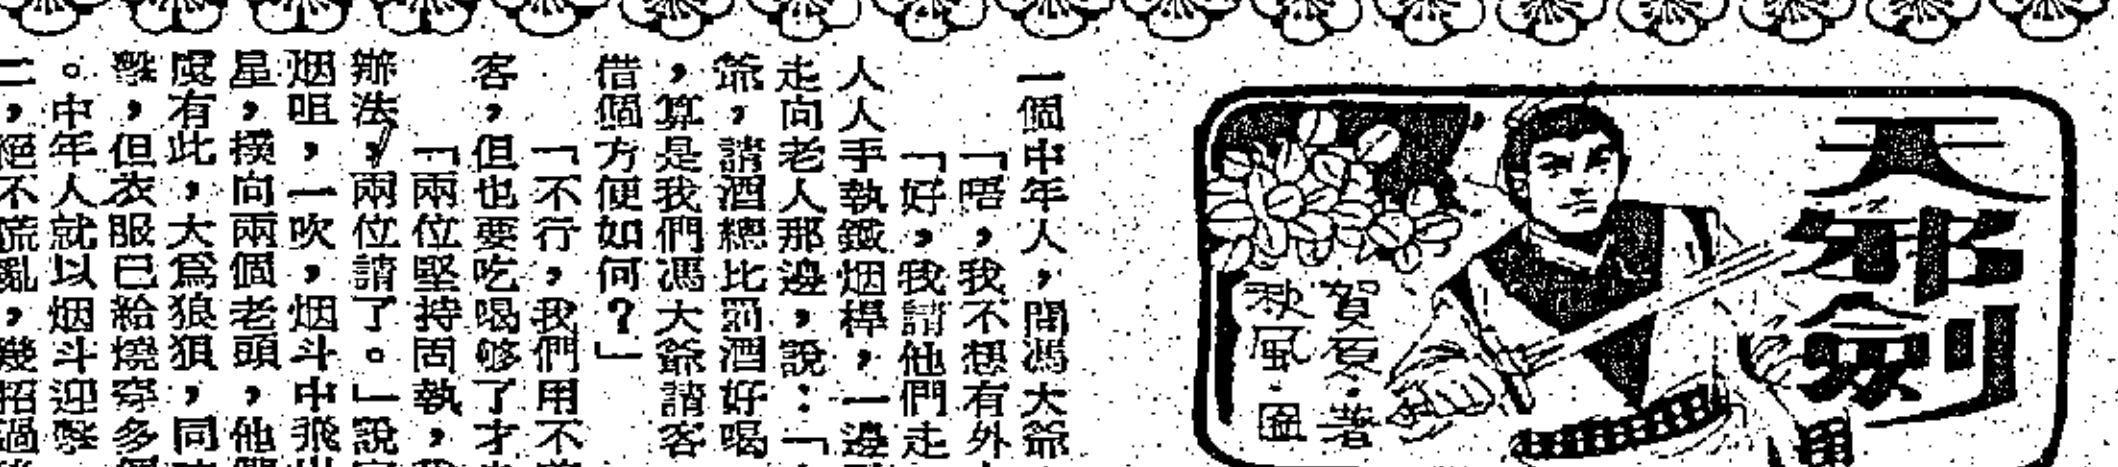 天邪劍
賀夏·著
秋風·圖
一個中年人，問馮大爺
「唔，我不想有外
「好，我請他們走
人人手執鐵烟桿，一邊
走向老人那邊，說：「
爺，請酒總比罰酒好喝
，算是我們馮大爺請客
借個方便如何？」
「不行，我們用不
客，但也要吃喝够了才
「兩位堅持固執，
辦法，兩位請了。」說
烟咀，一吹，烟斗中飛
星，撲向兩個老頭，他
虞有此，大爲狼狽，同
擊，但衣服已給燒穿多
。中年人就以烟斗迎擊
二，絕不慌亂，幾招過